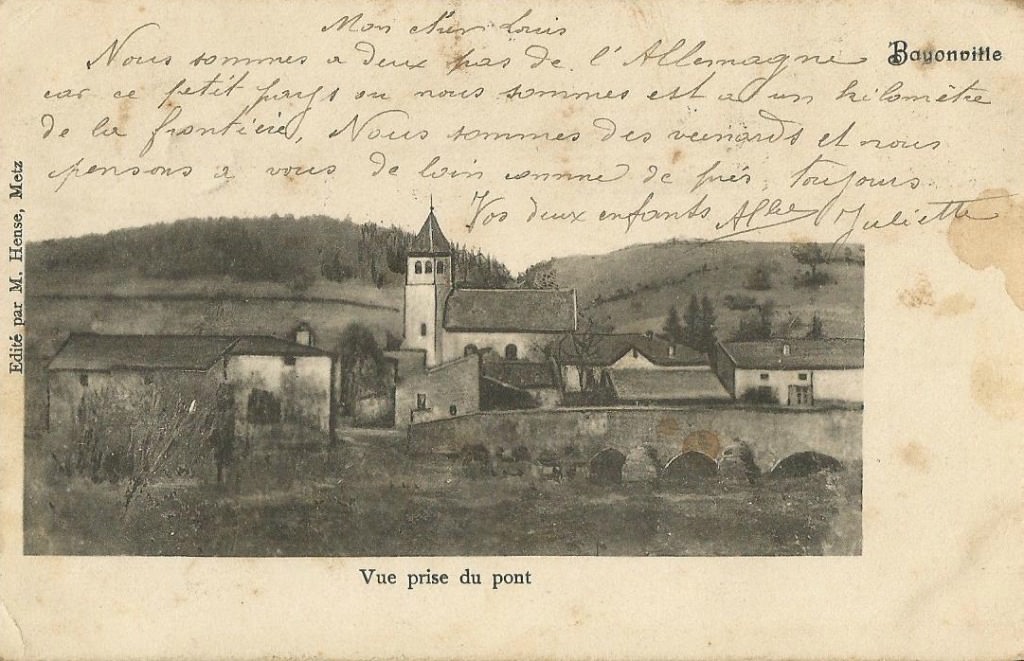 Mon cher Louis
Nous sommes a deux pas de l'Allemagne
Bayonville
car ce petit pays ou nous sommes est a un kilomètre
de la frontière, Nous sommes des veinards et nous
pensons a vous de loin comme de près, toujours.
Vos deux enfants Juliette
Edité par M. Hense, Metz
Vue prise du pont